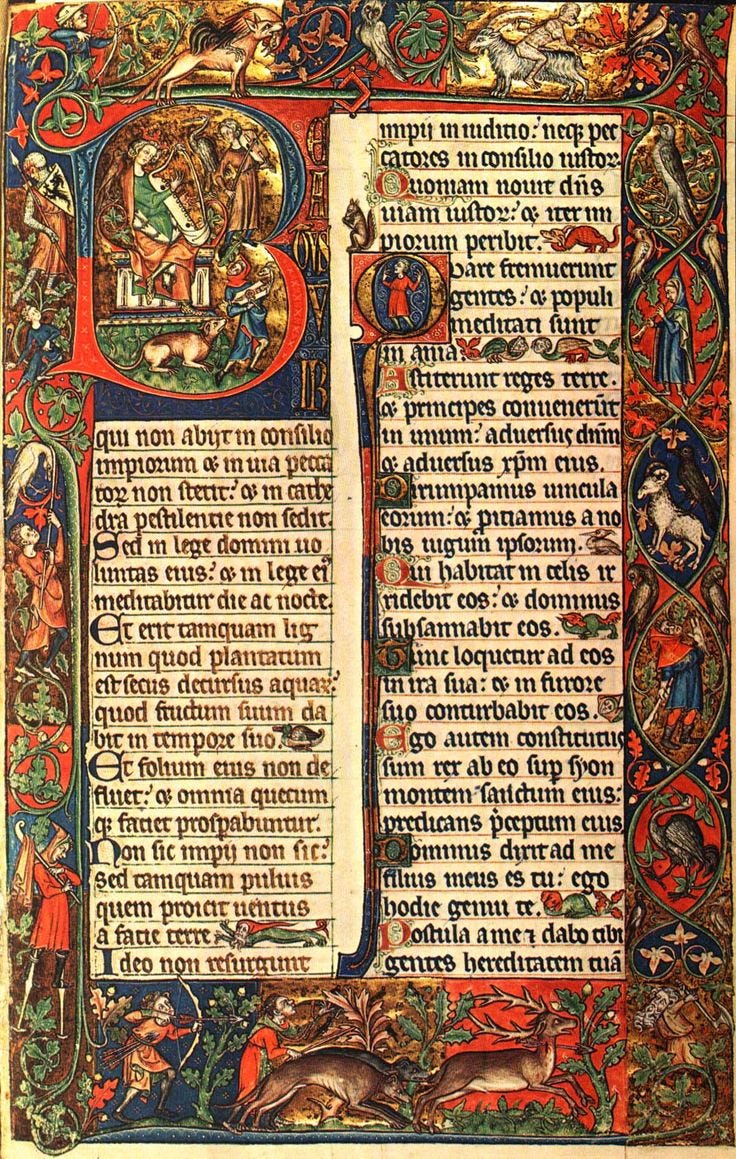 B
qui non abijt in consilio
impiorum & in uia pecca
toꝝ non stetit: & in cathe
dra pestilentie non sedit.
Sed in lege domini uo
luntas eius: & in lege eiꝰ
meditabitur die ac nocte.
Et erit tamquam lig
num quod plantatum
est secus decursus aquaꝝ:
quod fructum suum da
bit in tempore suo.
Et folium eius non de
fluet: & omnia quecum
qꝫ faciet prosꝑabuntur.
Non sic impij non sic:
sed tamquam puluis
quem proicit uentus
a facie terre
Ideo non resurgunt
impij in iuditio: neqꝫ pec
catores in consilio iustoꝝ.
Quoniam nouit dn̄s
uiam iustoꝝ: & iter im
piorum peribit.
Quare fremuerunt
gentes: & populi
meditati sunt
in ania:
Astiterunt reges terre.
& principes conuenerūt
in unum: aduersus dnm̄
& aduersus xp̄m eius.
Dirumpamus uincula
eorum: & ꝓiciamus a no
bis iugum ipsorum.
Qui habitat in celis ir
ridebit eos: & dominus
subsannabit eos.
Tunc loquetur ad eos
in ira sua: & in furore
suo conturbabit eos.
Ego autem constitutus
sum rex ab eo suꝑ syon
montem sanctum eius:
predicans p̄ceptum eius
Dominus dixit ad me
filius meus es tu: ego
hodie genui te.
Postula a me ⁊ dabo tibi
gentes hereditatem tuā